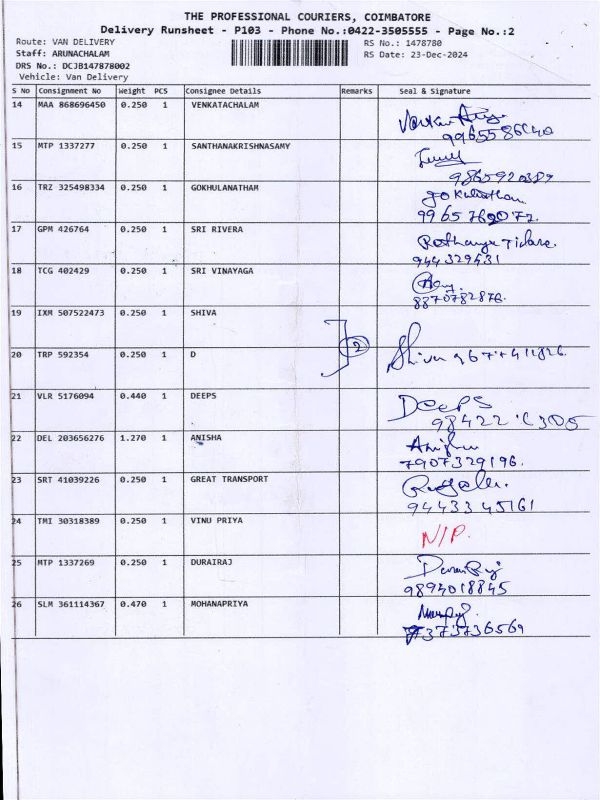 THE PROFESSIONAL COURIERS, COIMBATORE
Delivery Runsheet - P103 - Phone No.:0422-3505555 - Page No.:2
Route: VAN DELIVERY RS No.: 1478780
Staff: ARUNACHALAM RS Date: 23-Dec-2024
DRS No.: DCJB147878002
Vehicle: Van Delivery
S No Consignment No Weight PCS Consignee Details Remarks Seal & Signature
14 MAA 868696450 0.250 1 VENKATACHALAM
15 MTP 1337277 0.250 1 SANTHANAKRISHNASAMY
16 TRZ 325498334 0.250 1 GOKHULANATHAM
17 GPM 426764 0.250 1 SRI RIVERA
944329431
18 TCG 402429 0.250 1 SRI VINAYAGA
8870782876.
19 IXM 507522473 0.250 1 SHIVA
2
20 TRP 592354 0.250 1 D
Shiva
21 VLR 5176094 0.440 1 DEEPS DEEPS
98422
22 DEL 203656276 1.270 1 ANISHA
7907329196.
23 SRT 41039226 0.250 1 GREAT TRANSPORT
94433 45161
24 TMI 30318389 0.250 1 VINU PRIYA N/P.
25 MTP 1337269 0.250 1 DURAIRAJ
9894018845
26 SLM 361114367 0.470 1 MOHANAPRIYA
7373736569